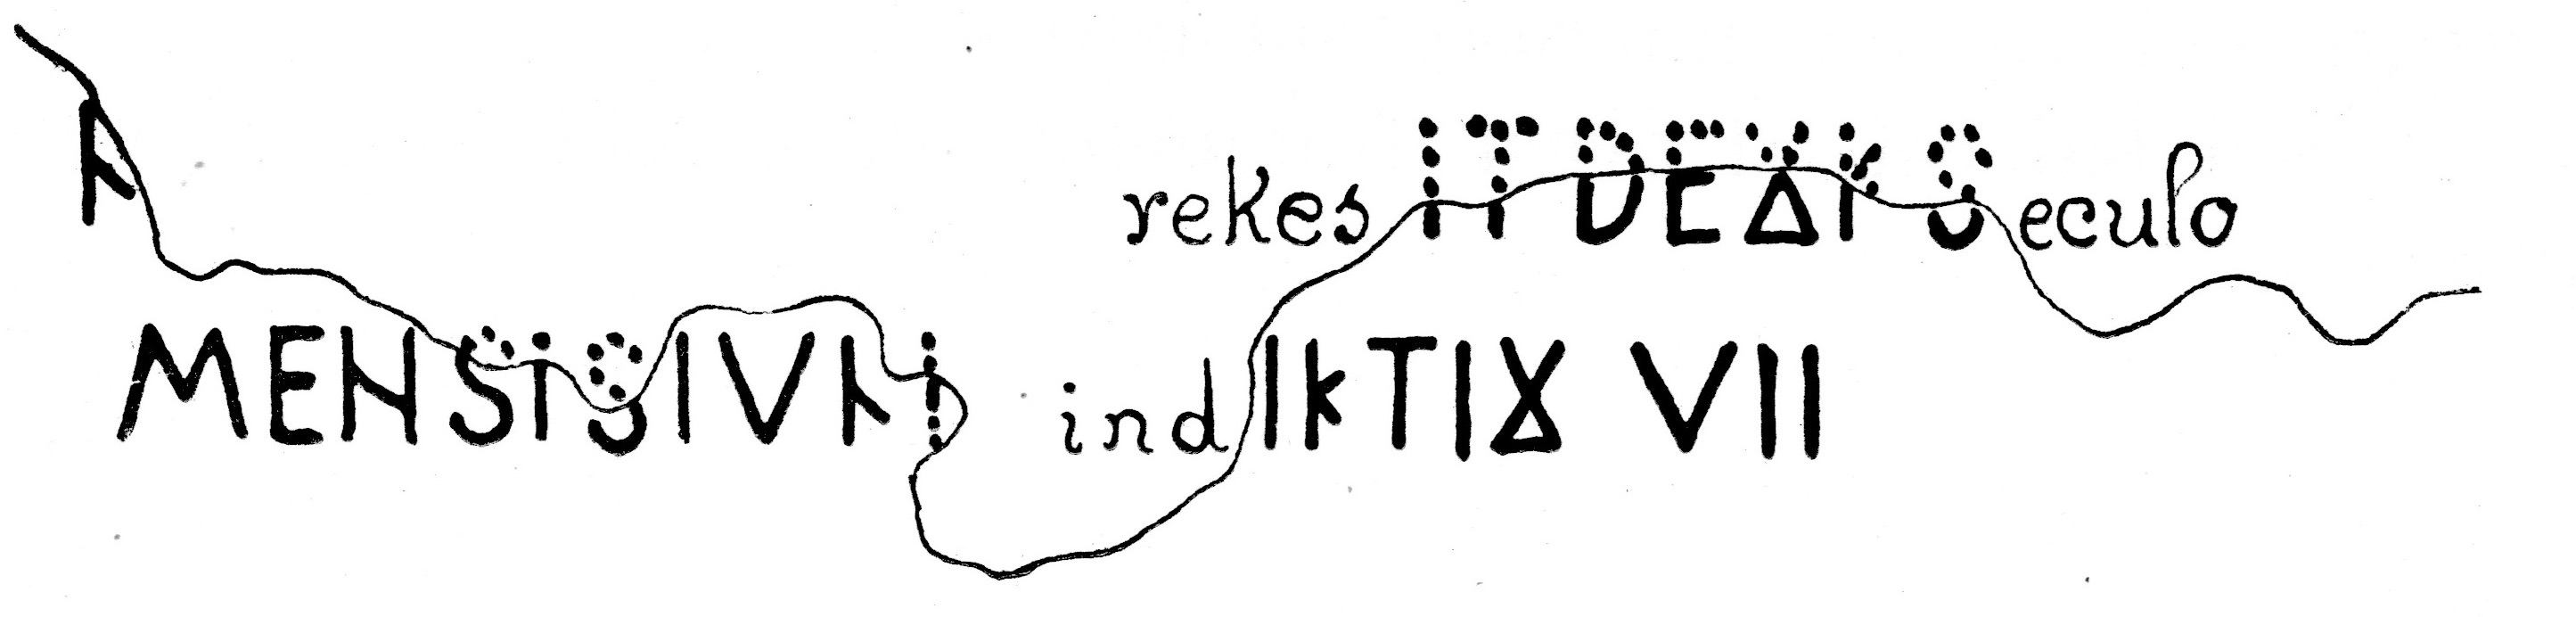 rekesIT DE AK Seculo
MENSIS IVNI indIKTIA VII